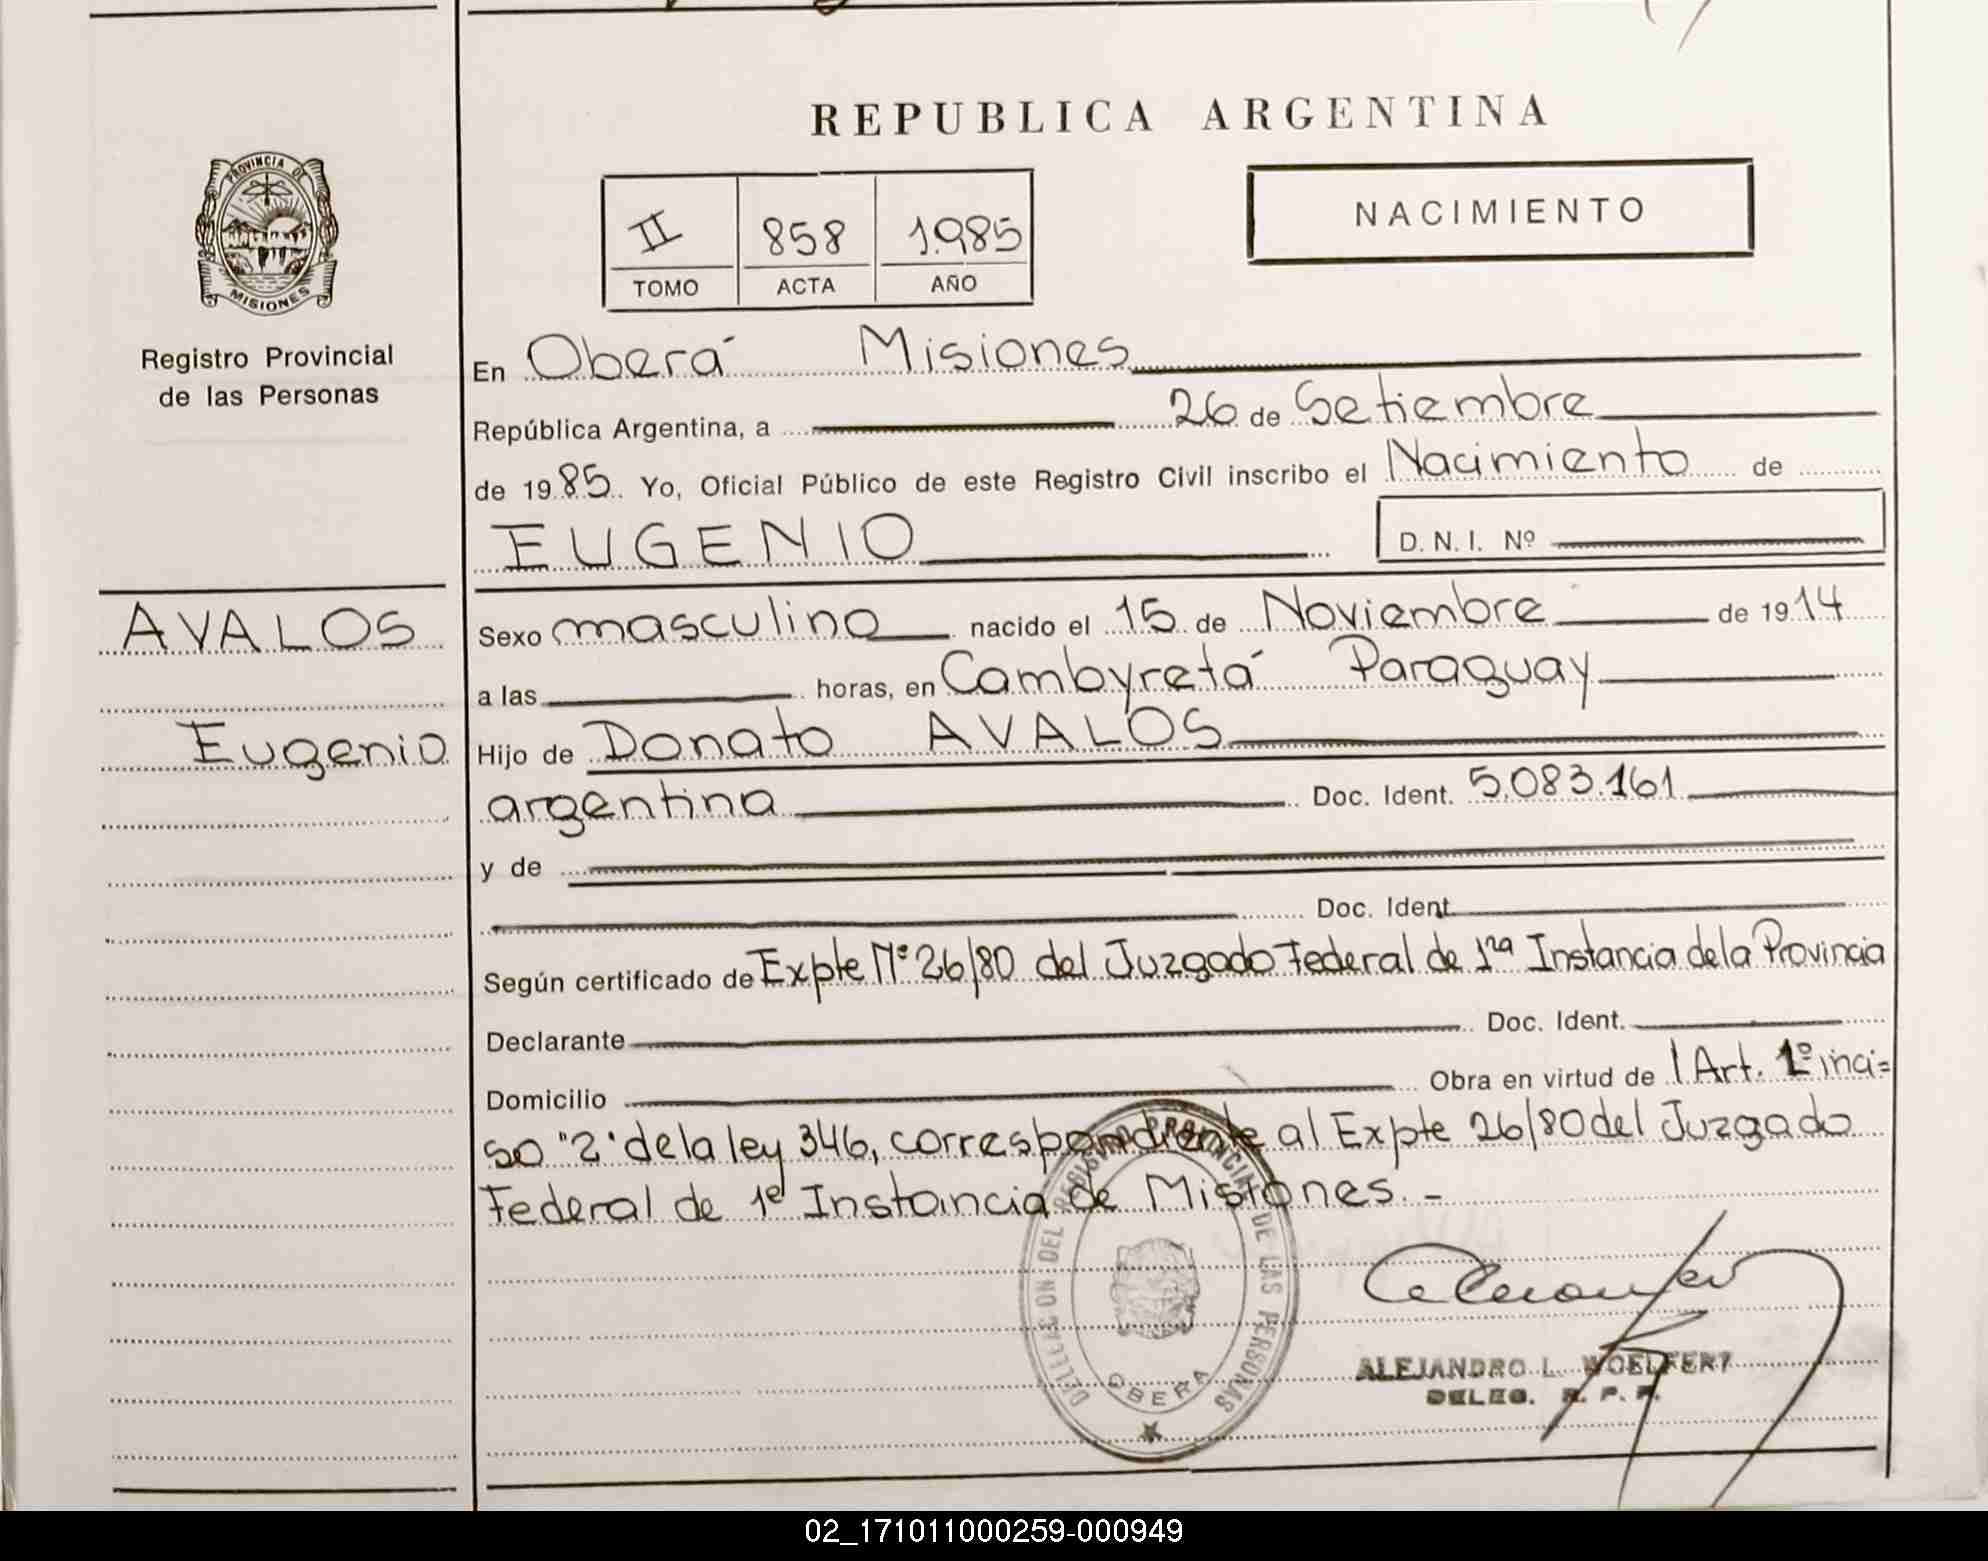 REPUBLICA ARGENTINA
PROVINCIA DE
MISIONES
Registro Provincial
de las Personas
II 858 1985
TOMO ACTA AÑO
NACIMIENTO
En Oberá Misiones
República Argentina, a 26 de Setiembre
de 1985 Yo, Oficial Público de este Registro Civil inscribo el Nacimiento de
EUGENIO D. N. I. Nº
AVALOS
Eugenio
Sexo masculino nacido el 15 de Noviembre de 1914
a las horas, en Cambyretá Paraguay
Hijo de Donato AVALOS
argentina Doc. Ident. 5.083.161
y de
Doc. Ident.
Según certificado de Expte Nº 26/80 del Juzgado Federal de 1ra Instancia de la Provincia
Declarante Doc. Ident.
Domicilio Obra en virtud de l Art. 1º inci=
so "2" de la ley 346, correspondiente al Expte 26/80 del Juzgado
Federal de 1ª Instancia de Misiones. -
DELEGACION DEL REGISTRO PROVINCIAL DE LAS PERSONAS
OBERA
ALEJANDRO L. WOELFERT
DELEG. R. P. P.
02_171011000259-000949